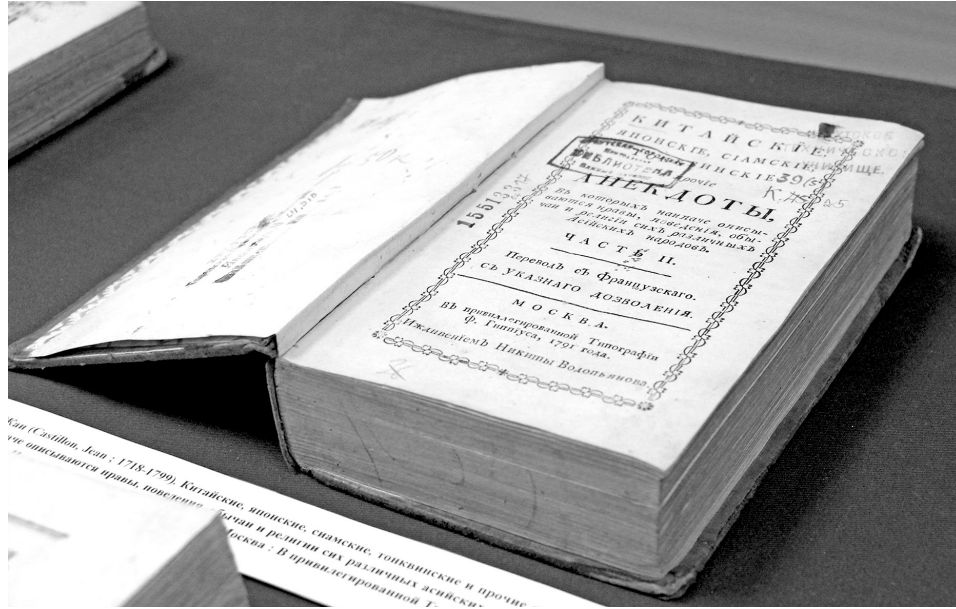 КИТАЙСКІЕ,
ЯПОНСКІЕ, СІАМСКІЕ,
АНЕКДОТЫ,
Въ которыхъ наипаче описы-
ваются нравы, поведенія, обы-
чаи и религіи сихъ различныхъ
Асійскихъ народовъ.
ЧАСТЬ II.
Переводъ съ Французскаго.
СЪ УКАЗНАГО ДОЗВОЛЕНІЯ.
МОСКВА.
Въ привиллегированной Типографіи
Ф. Гиппіуса, 1791 года.
Иждивеніемъ Никиты Водопьянова.
БИБЛИОТЕКА
39
155133
Жан (Castillon, Jean ; 1718-1799). Китайские, японские, сиамские, тонквинские и прочие
описываются нравы, поведения, обычаи и религии сих различных асийских
Москва : В привилегированной